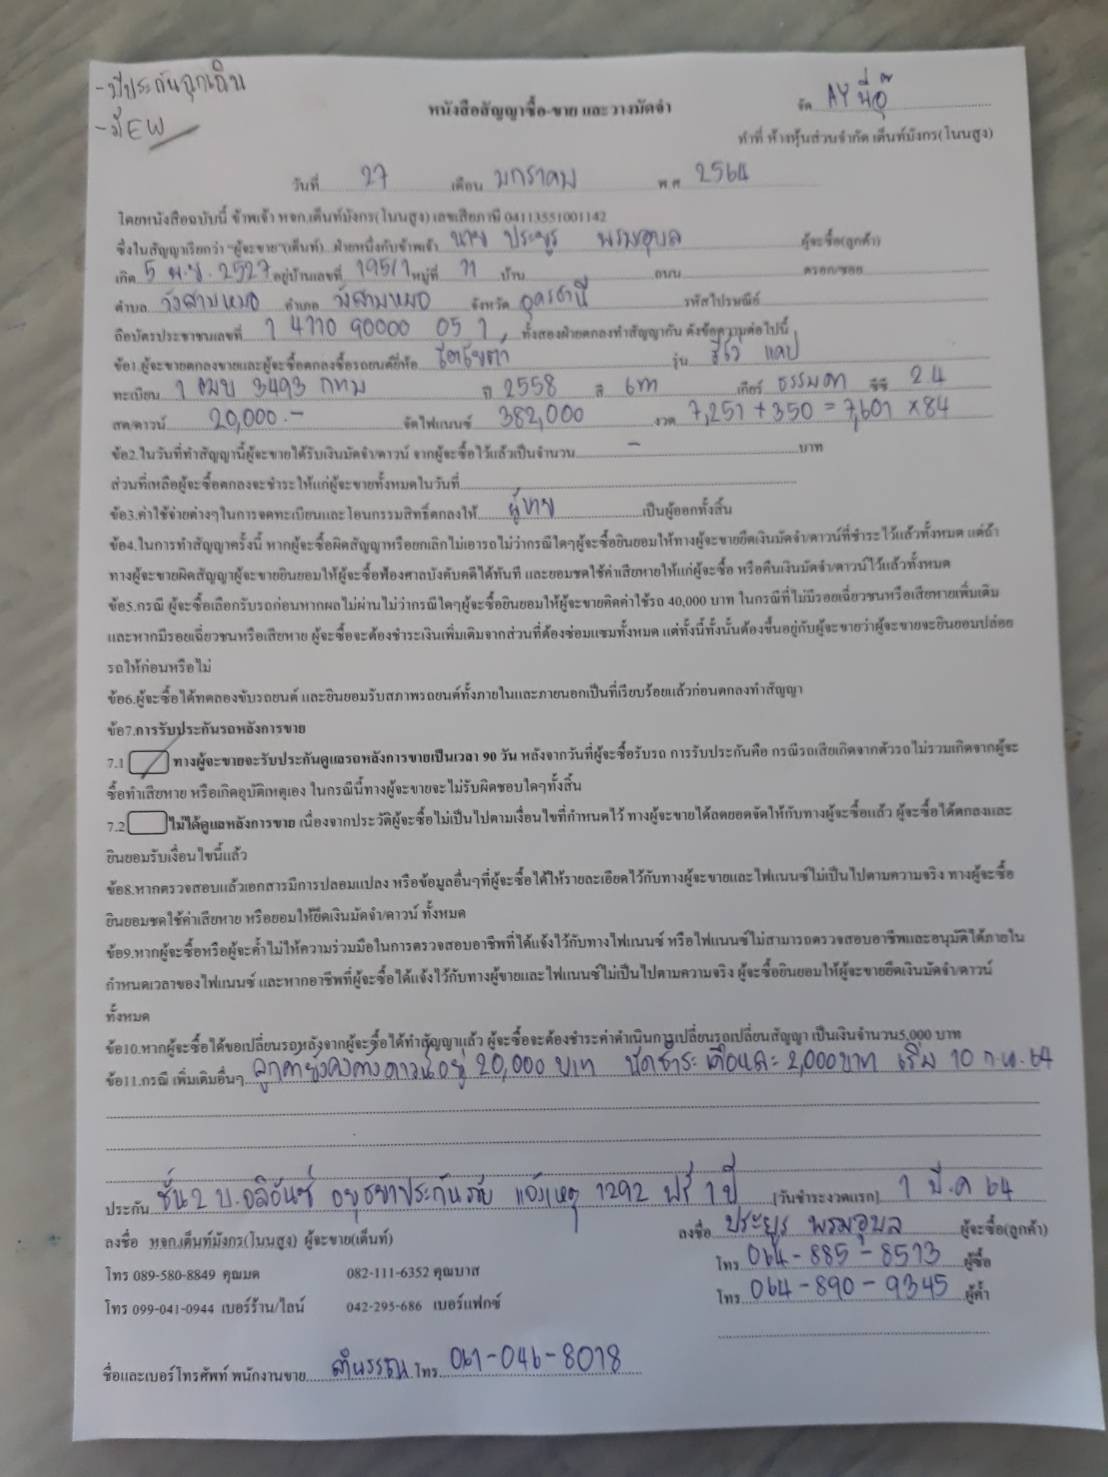 -มีประกันฉุกเฉิน
-มี EW
จัด AY พี่อุ๊
หนังสือสัญญาซื้อ-ขาย และ วางมัดจำ
ทำที่ ห้างหุ้นส่วนจำกัด เต็นท์มังกร(โนนสูง)
วันที่ 27 เดือน มกราคม พ.ศ. 2564
โดยหนังสือฉบับนี้ ข้าพเจ้า หจก.เต็นท์มังกร(โนนสูง) เลขเสียภาษี 04113551001142
ซึ่งในสัญญาเรียกว่า "ผู้จะขาย"(เต็นท์) ฝ่ายหนึ่งกับข้าพเจ้า นาย ประยูร พรมอุบล ผู้จะซื้อ(ลูกค้า)
เกิด 5 พ.ย. 2527 อยู่บ้านเลขที่ 195/1 หมู่ที่ 11 บ้าน ถนน ตรอก/ซอย
ตำบล วังสามหมอ อำเภอ วังสามหมอ จังหวัด อุดรธานี รหัสไปรษณีย์
ถือบัตรประชาชนเลขที่ 1 4110 90000 05 1 ทั้งสองฝ่ายตกลงทำสัญญากัน ดังข้อความต่อไปนี้
ข้อ1.ผู้จะขายตกลงขายและผู้จะซื้อตกลงซื้อรถยนต์ยี่ห้อ โตโยต้า รุ่น รีโว่ แคป
ทะเบียน 1 ฒบ 3493 กทม ปี 2558 สี เทา เกียร์ ธรรมดา ซีซี 2.4
สด/ดาวน์ 20,000.- จัดไฟแนนซ์ 382,000 งวด 7,251 + 350 = 7,601 x 84
ข้อ2.ในวันที่ทำสัญญานี้ผู้จะขายได้รับเงินมัดจำ/ดาวน์ จากผู้จะซื้อไว้แล้วเป็นจำนวน - บาท
ส่วนที่เหลือผู้จะซื้อตกลงจะชำระให้แก่ผู้จะขายทั้งหมดในวันที่
ข้อ3.ค่าใช้จ่ายต่างๆในการจดทะเบียนและโอนกรรมสิทธิ์ตกลงให้ ผู้ขาย เป็นผู้ออกทั้งสิ้น
ข้อ4.ในการทำสัญญาครั้งนี้ หากผู้จะซื้อผิดสัญญาหรือยกเลิกไม่เอารถไม่ว่ากรณีใดๆผู้จะซื้อยินยอมให้ทางผู้จะขายยึดเงินมัดจำ/ดาวน์ที่ชำระไว้แล้วทั้งหมด แต่ถ้า
ทางผู้จะขายผิดสัญญาผู้จะขายยินยอมให้ผู้จะซื้อฟ้องศาลบังคับคดีได้ทันที และยอมชดใช้ค่าเสียหายให้แก่ผู้จะซื้อ หรือคืนเงินมัดจำ/ดาวน์ไว้แล้วทั้งหมด
ข้อ5.กรณี ผู้จะซื้อเลือกรับรถก่อนหากผลไม่ผ่านไม่ว่ากรณีใดๆผู้จะซื้อยินยอมให้ผู้จะขายคิดค่าใช้รถ 40,000 บาท ในกรณีที่ไม่มีรอยเฉี่ยวชนหรือเสียหายเพิ่มเติม
และหากมีรอยเฉี่ยวชนหรือเสียหาย ผู้จะซื้อจะต้องชำระเงินเพิ่มเติมจากส่วนที่ต้องซ่อมแซมทั้งหมด แต่ทั้งนี้ทั้งนั้นต้องขึ้นอยู่กับผู้จะขายว่าผู้จะขายจะยินยอมปล่อย
รถให้ก่อนหรือไม่
ข้อ6.ผู้จะซื้อได้ทดลองขับรถยนต์ และยินยอมรับสภาพรถยนต์ทั้งภายในและภายนอกเป็นที่เรียบร้อยแล้วก่อนตกลงทำสัญญา
ข้อ7.การรับประกันรถหลังการขาย
7.1 ทางผู้จะขายจะรับประกันดูแลรถหลังการขายเป็นเวลา 90 วัน หลังจากวันที่ผู้จะซื้อรับรถ การรับประกันคือ กรณีรถเสียเกิดจากตัวรถไม่รวมเกิดจากผู้จะ
ซื้อทำเสียหาย หรือเกิดอุบัติเหตุเอง ในกรณีนี้ทางผู้จะขายจะไม่รับผิดชอบใดๆทั้งสิ้น
7.2 ไม่ได้ดูแลหลังการขาย เนื่องจากประวัติผู้จะซื้อไม่เป็นไปตามเงื่อนไขที่กำหนดไว้ ทางผู้จะขายได้ลดยอดจัดให้กับทางผู้จะซื้อแล้ว ผู้จะซื้อได้ตกลงและ
ยินยอมรับเงื่อนไขนี้แล้ว
ข้อ8.หากตรวจสอบแล้วเอกสารมีการปลอมแปลง หรือข้อมูลอื่นๆที่ผู้จะซื้อได้ให้รายละเอียดไว้กับทางผู้จะขายและไฟแนนซ์ไม่เป็นไปตามความจริง ทางผู้จะซื้อ
ยินยอมชดใช้ค่าเสียหาย หรือยอมให้ยึดเงินมัดจำ/ดาวน์ ทั้งหมด
ข้อ9.หากผู้จะซื้อหรือผู้จะค้ำไม่ให้ความร่วมมือในการตรวจสอบอาชีพที่ได้แจ้งไว้กับทางไฟแนนซ์ หรือไฟแนนซ์ไม่สามารถตรวจสอบอาชีพและอนุมัติได้ภายใน
กำหนดเวลาของไฟแนนซ์ และหากอาชีพที่ผู้จะซื้อได้แจ้งไว้กับทางผู้ขายและไฟแนนซ์ไม่เป็นไปตามความจริง ผู้จะซื้อยินยอมให้ผู้จะขายยึดเงินมัดจำ/ดาวน์
ทั้งหมด
ข้อ10.หากผู้จะซื้อได้ขอเปลี่ยนรถหลังจากผู้จะซื้อได้ทำสัญญาแล้ว ผู้จะซื้อจะต้องชำระค่าดำเนินการเปลี่ยนรถเปลี่ยนสัญญา เป็นเงินจำนวน5,000 บาท
ข้อ11.กรณี เพิ่มเติมอื่นๆ ลูกค้ายังคงค้างดาวน์อยู่ 20,000 บาท นัดชำระ เดือนละ 2,000 บาท เริ่ม 10 ก.พ. 64
ประกัน ชั้น 2 บ.อลิอันซ์ อยุธยาประกันภัย แจ้งเหตุ 1292 ฟรี 1 ปี (วันชำระงวดแรก) 1 มี.ค 64
ลงชื่อ หจก.เต็นท์มังกร(โนนสูง) ผู้จะขาย(เต็นท์) ลงชื่อ ประยูร พรมอุบล ผู้จะซื้อ(ลูกค้า)
โทร 089-580-8849 คุณมด 082-111-6352 คุณบาส โทร 064-885-8513 ผู้ซื้อ
โทร 099-041-0944 เบอร์ร้าน/ไลน์ 042-295-686 เบอร์แฟกซ์ โทร 064-890-9345 ผู้ค้ำ
ชื่อและเบอร์โทรศัพท์ พนักงานขาย โทร 061-046-8018